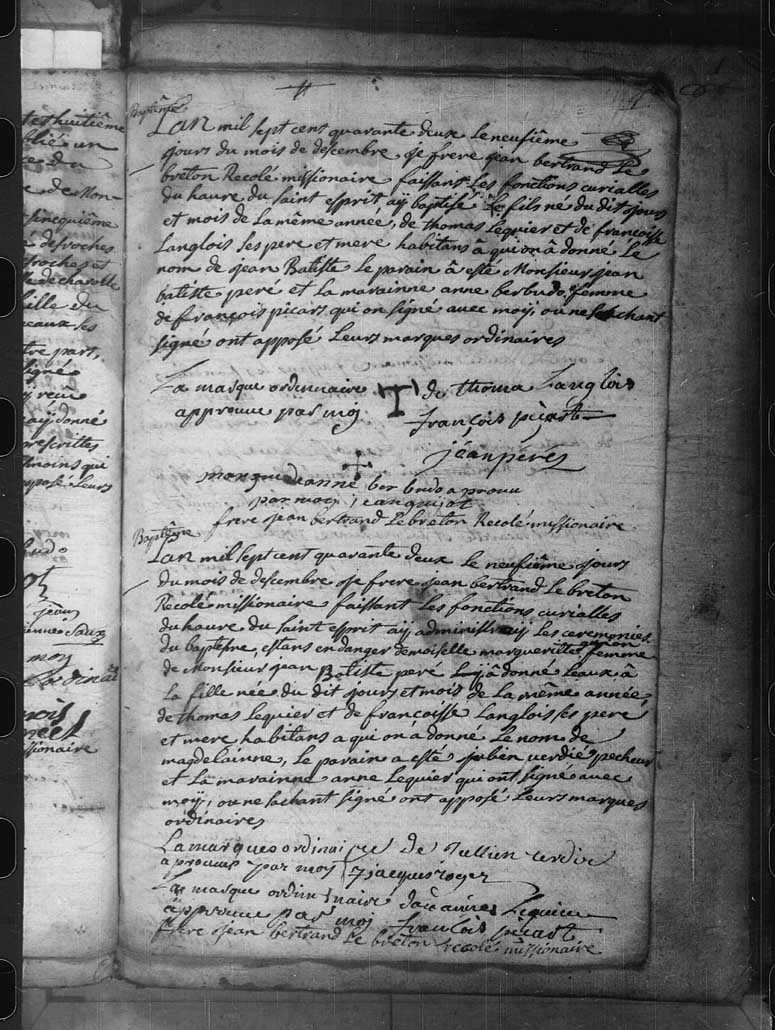 t et huitième
blié un
de Mon-
sincquiême
desroches
troches et
ille du
ceaux ses
tre part,
signé
aÿ donné
prescrittes
tmoins qui
apposé leurs
budo
jean
moy
ordinai
missionaire
Baptême
Lan mil sept cent quarante deux le neufiême
jours du mois de descembre je frere jean bertrand Le
breton Recolé missionaire faissant Les fonctions curialles
du haure du saint esprit aÿ baptisé Le fils né du dit jours
et mois de la même annee, de thomas Lequier et de françoisse
Langlois ses pere et mere habitans â qui on â donné Le
nom de jean Batiste Le parain â esté Monsieur jean
batiste peré et La marainne anne berbudo femme
de françois picart qui on signé avec moÿ, ou ne sachant
signé ont apposé Leurs marques ordinaires
La masque ordinnaire T de thoma Langlois
approuue par moj françois picart
jean perés
marque de anne + ber budo aprouu
par moy jean guijot
frere jean bertrand Le breton Recolé missionaire
Baptême
Lan mil sept cent quarante deux le neufiême jours
du mois de descembre je frere jean bertrand Le breton
Recolé missionaire faissant Les fonctions curialles
du haure du saint esprit aÿ administré Les ceremonies
du baptesme, estans en danger demoiselle margueritte femme
de Monsieur jean Batiste peré Luÿ â donné Leaux â
La fille née du dit jours et mois de La même année,
de thomas Lequier et de françoisse Langlois ses pere
et mere habitans a qui on â donné Le nom de
magdelainne, Le parain a esté julien verdié pecheur
et La marainne anne Lequier qui ont signé avec
moÿ, ou ne sachant signé ont apposé Leurs marques
ordinaires
La marques ordinaire de Jullien verdie
aprouués par moy jacques roger
La masque ordinnaire Lequier
approuue par moj françois picart
frere jean bertrand Le breton recolé missionaire